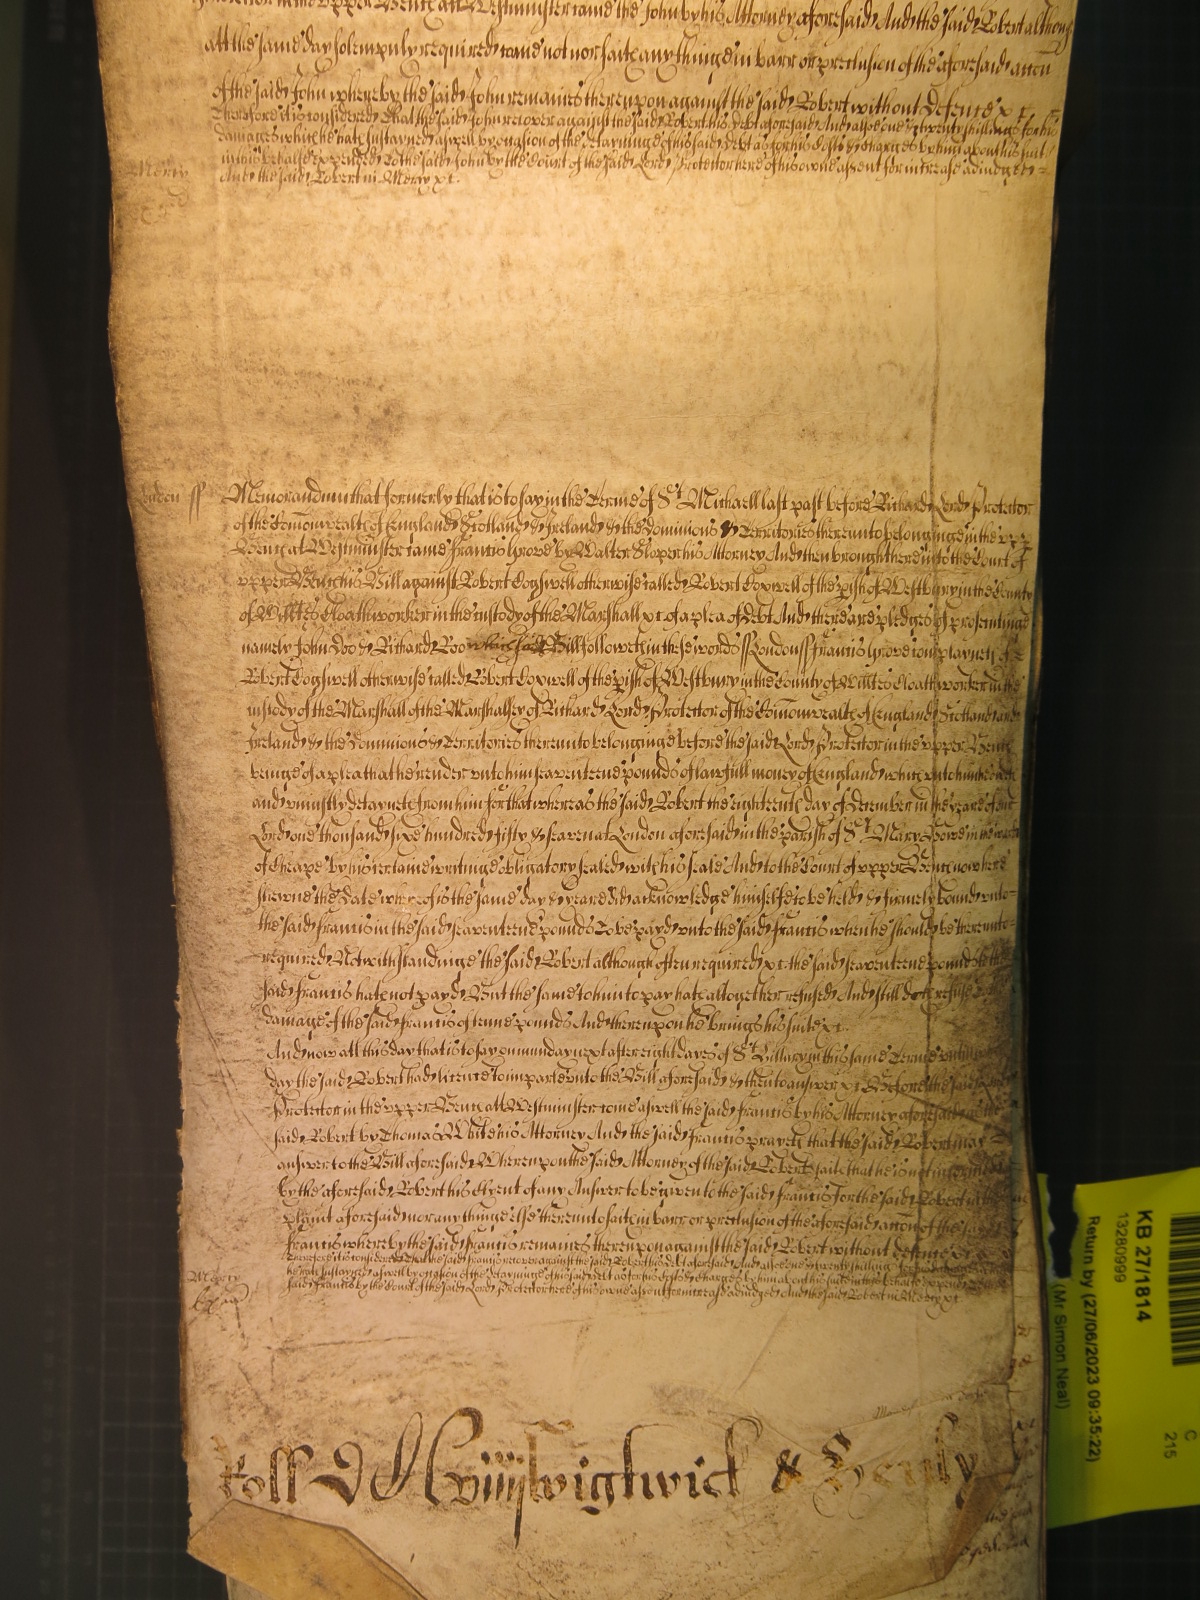 Protector in the upper Bench att Westminster came the John by his Attorney aforesaid And the said Robert although
att the same day solempnly required came not nor saith any thinge in barr or preclusion of the aforesaid accon
of the said John whereby the said John remaines thereupon against the said Robert without Defence &c
Therefore it is considered That the said John recover against the said Robert his Debt aforesaid And alsoe one & twenty shillings for his
damages which he hath sustayned aswell by occasion of the detayninge of his said Debt as for his Costs & charges by him about his suit
in this behalfe expended To the said John by the Court of the said Lord Protector here of his owne assent for increase adiudged
And the said Robert in Mercy &c.
Mercy
London ss Memorandum that formerly that is to say in the Terme of St Michaell last past before Richard Lord Protector
of the Comonwealth of England Scotland & Ireland & the dominions & Territories thereunto belonginge in the upp
Bench at Westminster came Francis Grove by Walter Sloper his Attorney And then brought here into the Court of
upper Bench his Bill against Robert Cogswell otherwise called Robert Coxwell of the pish of Westbury in the County
of Wiltes Cloathworker in the custody of the Marshall &c of a plea of Debt And there are pledges of prosecutinge
namely John Doo & Richard Roo which said Bill followeth in these words ss London ss Francis Grove complayneth of
Robert Cogswell otherwise called Robert Coxwell of the pish of Westbury in the County of Wiltes Cloathworker in the
custody of the Marshall of the Marshalsey of Richard Lord Protector of the Comonwealth of England Scotland and
Ireland & the Dominions & Territories thereunto belonginge before the said Lord Protector in the upper Bench
beinge of a plea that he render unto him seaventeene pounds of lawfull money of England which unto him he oweth
and uniustly detayneth from him for that whereas the said Robert the eighteenth day of December in the yeare of our
Lord one thousand sixe hundred fifty & seaven at London aforesaid in the parish of St Mary Bowe in the ward
of Cheape by his certaine writinge obligatory sealed with his seale And to the Court of upper Bench now here
shewne the Date whereof is the same day & yeare did acknowledge himselfe to be held & firmely bound unto
the said Francis in the said seaventeene pounds To be payd unto the said Francis when he should be thereunto
required Notwithstandinge the said Robert although often required &c. the said seaventeene pounds to the
said Francis hath not payd But the same to him to pay hath altogether refused And still doth refuse
damage of the said Francis of tenne pounds And thereupon he brings his suite &c.
And now att this day that is to say on munday next after eight dayes of St Hillary in this same Terme untill
day the said Robert had licence to imparle unto the Bill aforesaid & then to answer &c Before the said Lord
Protector in the upper Bench att Westminster come aswell the said Francis by his Attorney aforesaid as the
said Robert by Thomas White his Attorney And the said Francis prayeth that the said Robert may
answer to the Bill aforesaid Whereupon the said Attorney of the said Robert saith that he is not informed
by the aforesaid Robert his Clyent of any Answer to be given to the said Francis for the said Robert in the
plaint aforesaid nor any thinge else thereunto saith in barr or preclusion of the aforesaid accon of the said
Francis whereby the said Francis remaines thereupon against the said Robert without defence &c
Therefore it is considered That the said Francis recover against the said Robert his debt aforesaid And alsoe one & twenty shillings for his damages which
he hath sustayned aswell by occasion of the detayninge of his said debt as for his Costs & charges by him about his suite in this behalfe expended
said Francis by the Court of the said Lord Protector here of his owne assent for increase adiudged And the said Robert in Mercy &c
Mercy
Roll Wightwick & Henly
KB 27/1814
13280999
Return by (27/06/2023 09:35:22)
(Mr Simon Neal)
C
215